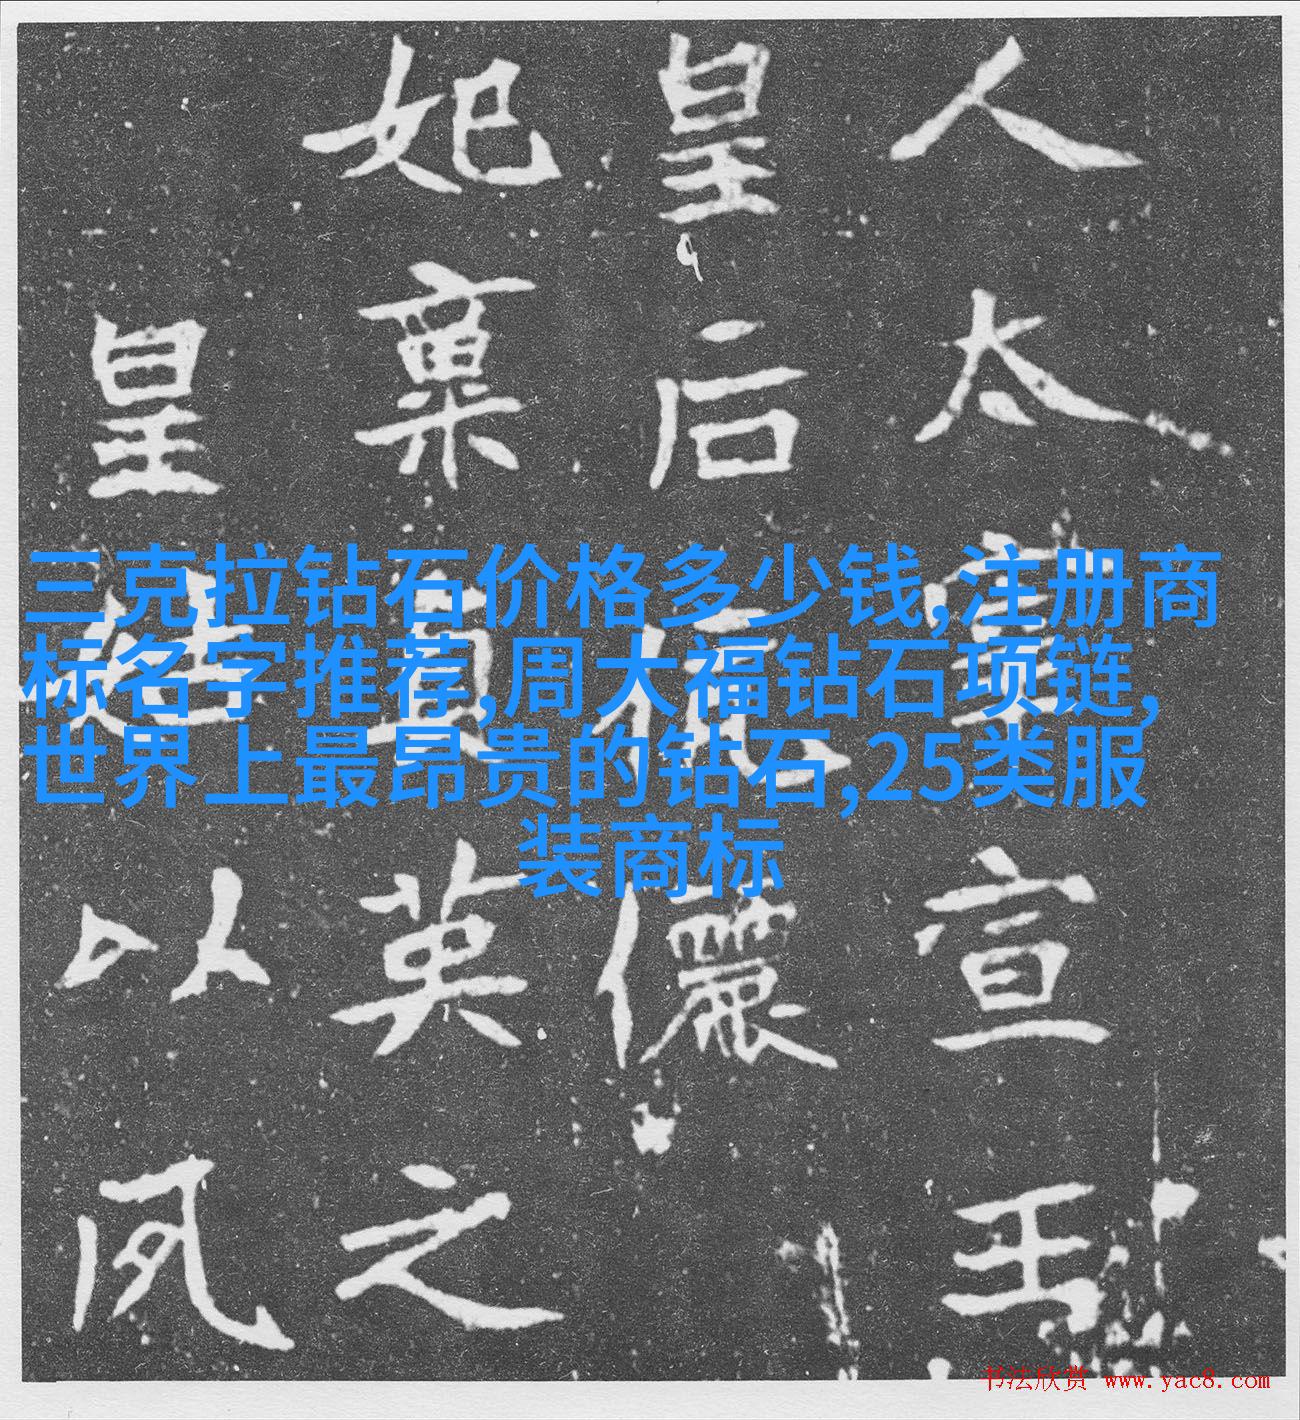 人太宣王
皇后伉儷
妃稟英之
皇以風
三克拉钻石价格多少钱,注册商
标名字推荐,周大福钻石项链,
世界上最昂贵的钻石,25类服
装商标
书法欣赏 www.yac8.com